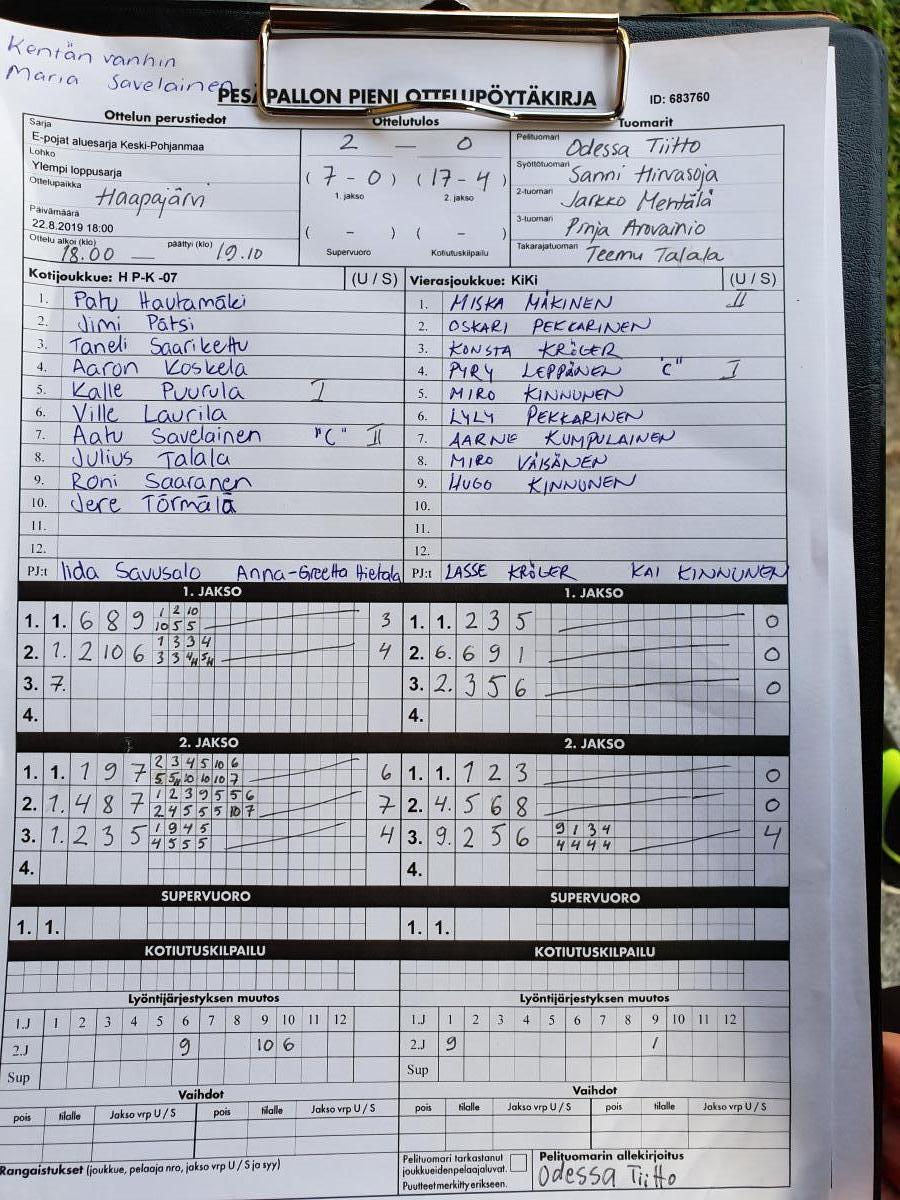 Kentän vanhin
Maria Savelainen
PESÄPALLON PIENI OTTELUPÖYTÄKIRJA ID: 683760
Ottelun perustiedot Ottelutulos Tuomarit
Sarja
E-pojat aluesarja Keski-Pohjanmaa
Lohko
Ylempi loppusarja
Ottelupaikka Haapajärvi
Päivämäärä
22.8.2019 18:00
Ottelu alkoi (klo) 18.00 — päättyi (klo) 19.10
2 — 0
( 7 - 0 ) ( 17 - 4 )
1. jakso 2. jakso
( - ) ( - )
Supervuoro Kotiutuskilpailu
Pelituomari Odessa Tiitto
Syöttötuomari Sanni Hirvasoja
2-tuomari Jarkko Mehtälä
3-tuomari Pinja Arovainio
Takarajatuomari Teemu Talala
Kotijoukkue: H P-K -07 (U / S) Vierasjoukkue: KiKi (U / S)
1. Patu Hautamäki 1. MISKA MÄKINEN II
2. Jimi Pätsi 2. OSKARI PEKKARINEN
3. Taneli Saarikettu 3. KONSTA KRÖGER
4. Aaron Koskela 4. PYRY LEPPÄNEN "C" I
5. Kalle Puurula I 5. MIRO KINNUNEN
6. Ville Laurila 6. LYLY PEKKARINEN
7. Aatu Savelainen "C" II 7. AARNE KUMPULAINEN
8. Julius Talala 8. MIRO VÄISÄNEN
9. Roni Saaranen 9. HUGO KINNUNEN
10. Jere Törmälä 10.
11. 11.
12. 12.
PJ:t Iida Savusalo Anna-Greetta Hietala PJ:t LASSE KRÖGER KAI KINNUNEN
1. JAKSO 1. JAKSO
1. 1. 6 8 9 1 2 10 3 1. 1. 2 3 5 0
10 5 5
2. 1. 2 10 6 1 3 3 4 4 2. 6. 6 9 1 0
3 3 4H 5H
3. 7. 3. 2. 3 5 6 0
4. 4.
2. JAKSO 2. JAKSO
1. 1. 1 9 7 2 3 4 5 10 6 6 1. 1. 1 2 3 0
5 5H 10 10 10 7
2. 1. 4 8 7 1 2 3 9 5 5 6 7 2. 4. 5 6 8 0
2 4 5 5 5 10 7
3. 1. 2 3 5 1 9 4 5 4 3. 9. 2 5 6 9 1 3 4 4
4 5 5 5 4 4 4 4
4. 4.
SUPERVUORO SUPERVUORO
1. 1. 1. 1.
KOTIUTUSKILPAILU KOTIUTUSKILPAILU
Lyöntijärjestyksen muutos Lyöntijärjestyksen muutos
1.J 1 2 3 4 5 6 7 8 9 10 11 12 1.J 1 2 3 4 5 6 7 8 9 10 11 12
2.J 9 10 6 2.J 9 1
Sup Sup
Vaihdot Vaihdot
pois tilalle Jakso vrp U / S pois tilalle Jakso vrp U / S pois tilalle Jakso vrp U / S pois tilalle Jakso vrp U / S
Rangaistukset (joukkue, pelaaja nro, jakso vrp U / S ja syy)
Pelituomari tarkastanut
joukkueidenpelaajaluvat.
Puutteet merkitty erikseen.
Pelituomarin allekirjoitus
Odessa Tiitto